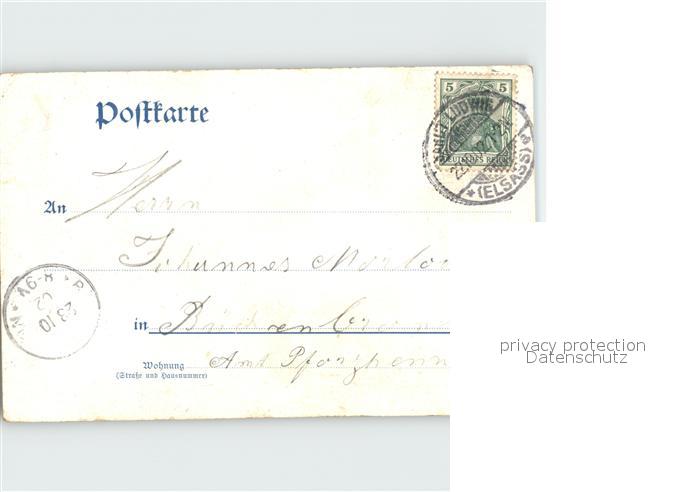 Postkarte
5 5
DEUTSCHES REICH
LUDWIG
* (ELSASS) a
An Herrn
Johannes
8-9V
23 10
02
in
Amt Pforzheim
Wohnung
(Straße und Hausnummer)
privacy protection
Datenschutz